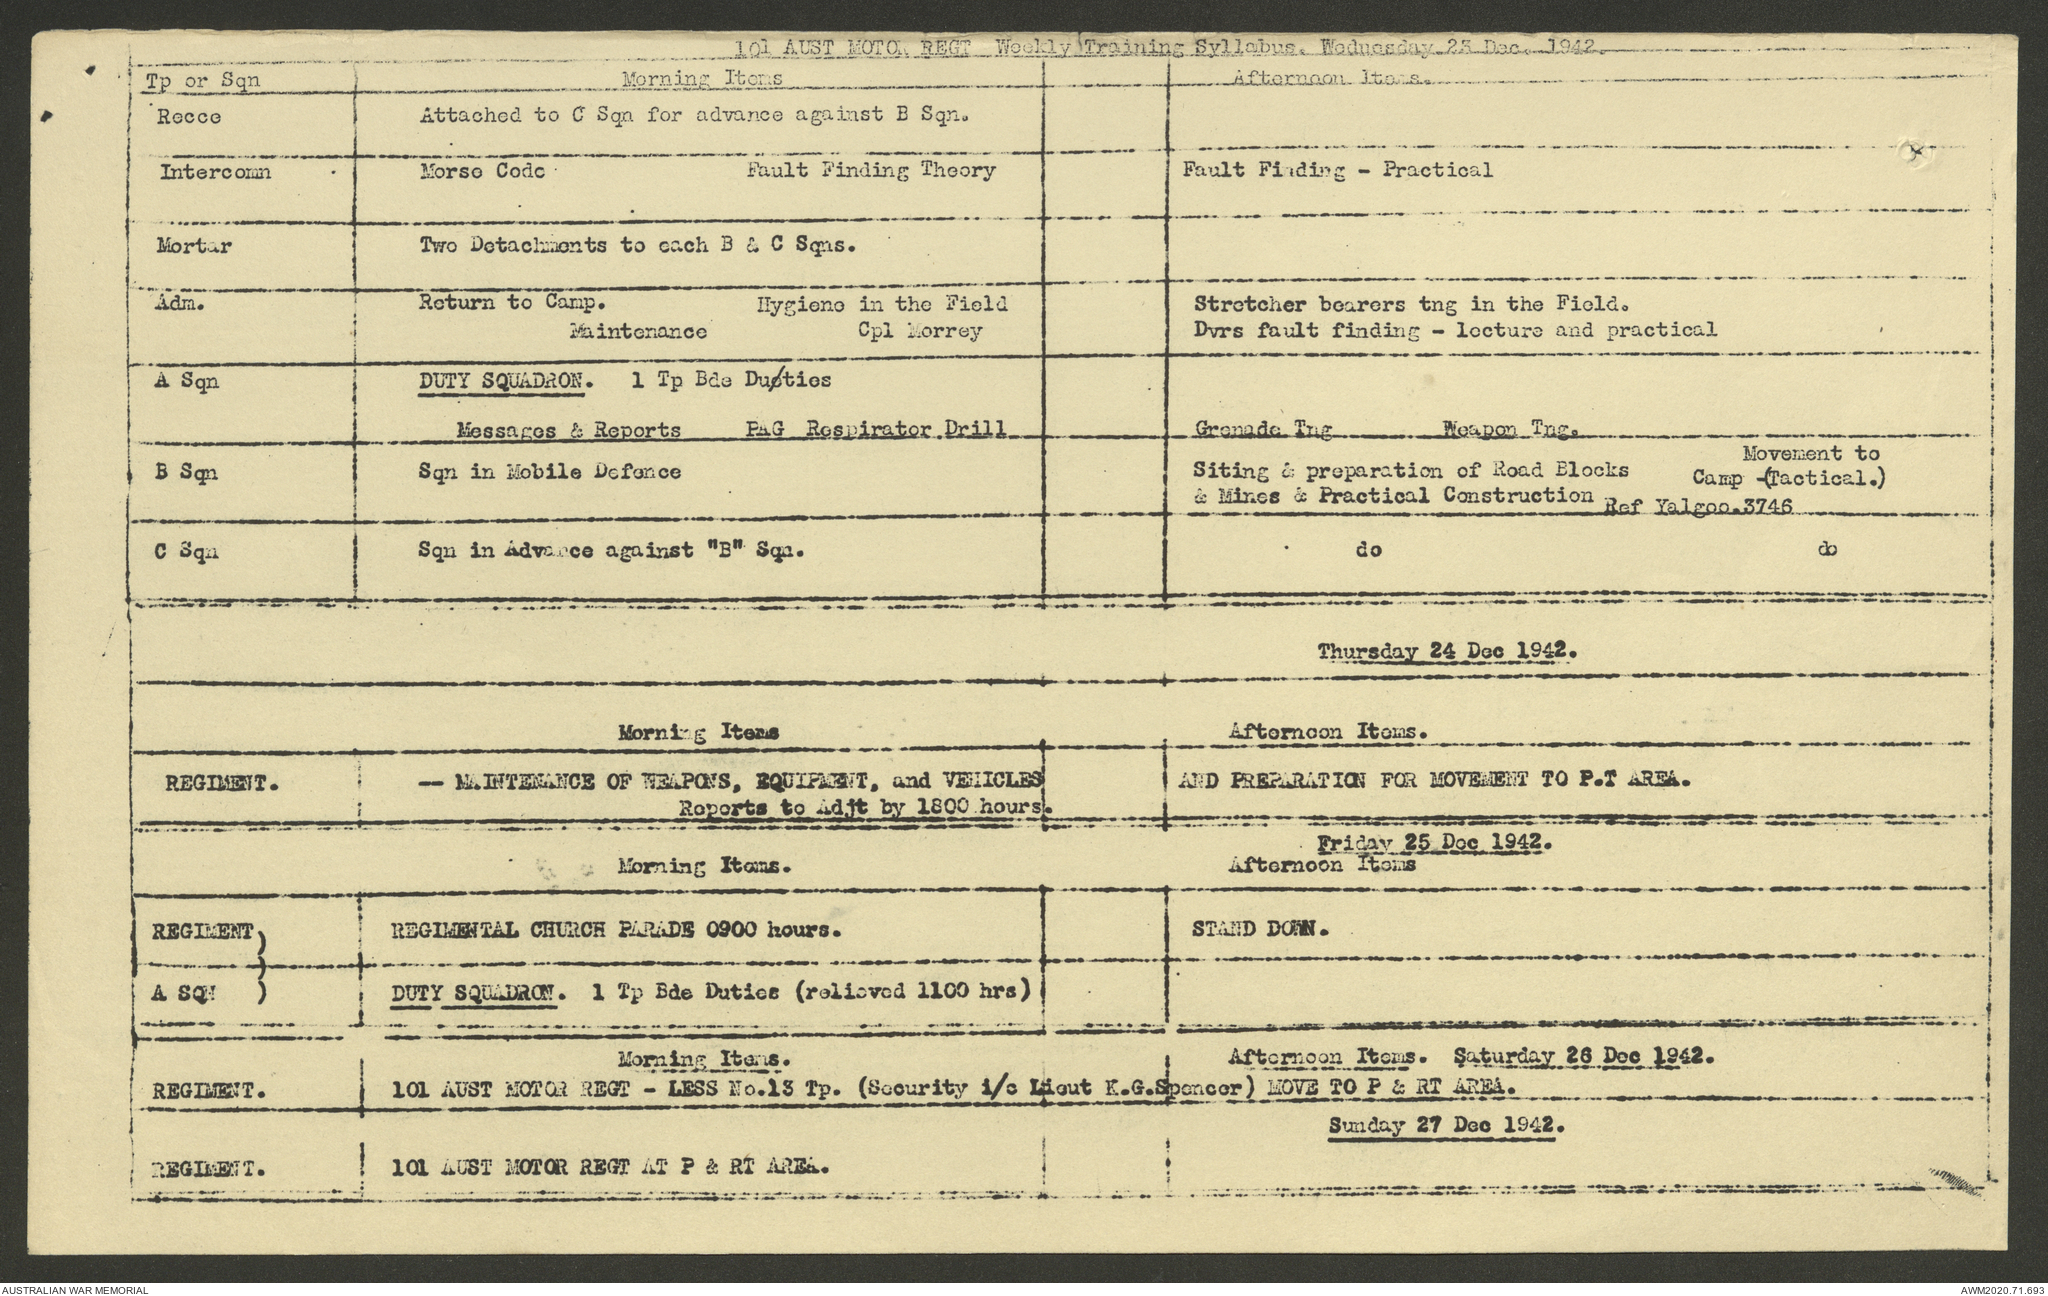 101 AUST MOTOR REGT Weekly Training Syllabus. Wednesday 23 Dec. 1942.
Tp or Sqn Morning Items Afternoon Items.
Recce Attached to C Sqn for advance against B Sqn.
Intercomn Morse Code Fault Finding Theory Fault Finding - Practical
Mortar Two Detachments to each B & C Sqns.
Adm. Return to Camp. Hygiene in the Field Stretcher bearers tng in the Field.
Maintenance Cpl Morrey Dvrs fault finding - lecture and practical
A Sqn DUTY SQUADRON. 1 Tp Bde Duties
Messages & Reports PAG Respirator Drill Grenade Tng Weapon Tng.
Movement to
B Sqn Sqn in Mobile Defence Siting & preparation of Road Blocks Camp -(Tactical.)
& Mines & Practical Construction
Ref Yalgoo.3746
C Sqn Sqn in Advance against "B" Sqn. do do
Thursday 24 Dec 1942.
Morning Items Afternoon Items.
REGIMENT. -- MAINTENANCE OF WEAPONS, EQUIPMENT, and VEHICLES AND PREPARATION FOR MOVEMENT TO P.T AREA.
Reports to Adjt by 1800 hours.
Friday 25 Dec 1942.
Morning Items. Afternoon Items
REGIMENT) REGIMENTAL CHURCH PARADE 0900 hours. STAND DOWN.
)
A SQN ) DUTY SQUADRON. 1 Tp Bde Duties (relieved 1100 hrs)
Morning Items. Afternoon Items. Saturday 26 Dec 1942.
REGIMENT. 101 AUST MOTOR REGT - LESS No.13 Tp. (Security i/c Lieut K.G.Spencer) MOVE TO P & RT AREA.
Sunday 27 Dec 1942.
REGIMENT. 101 AUST MOTOR REGT AT P & RT AREA.
AUSTRALIAN WAR MEMORIAL AWM2020.71.693